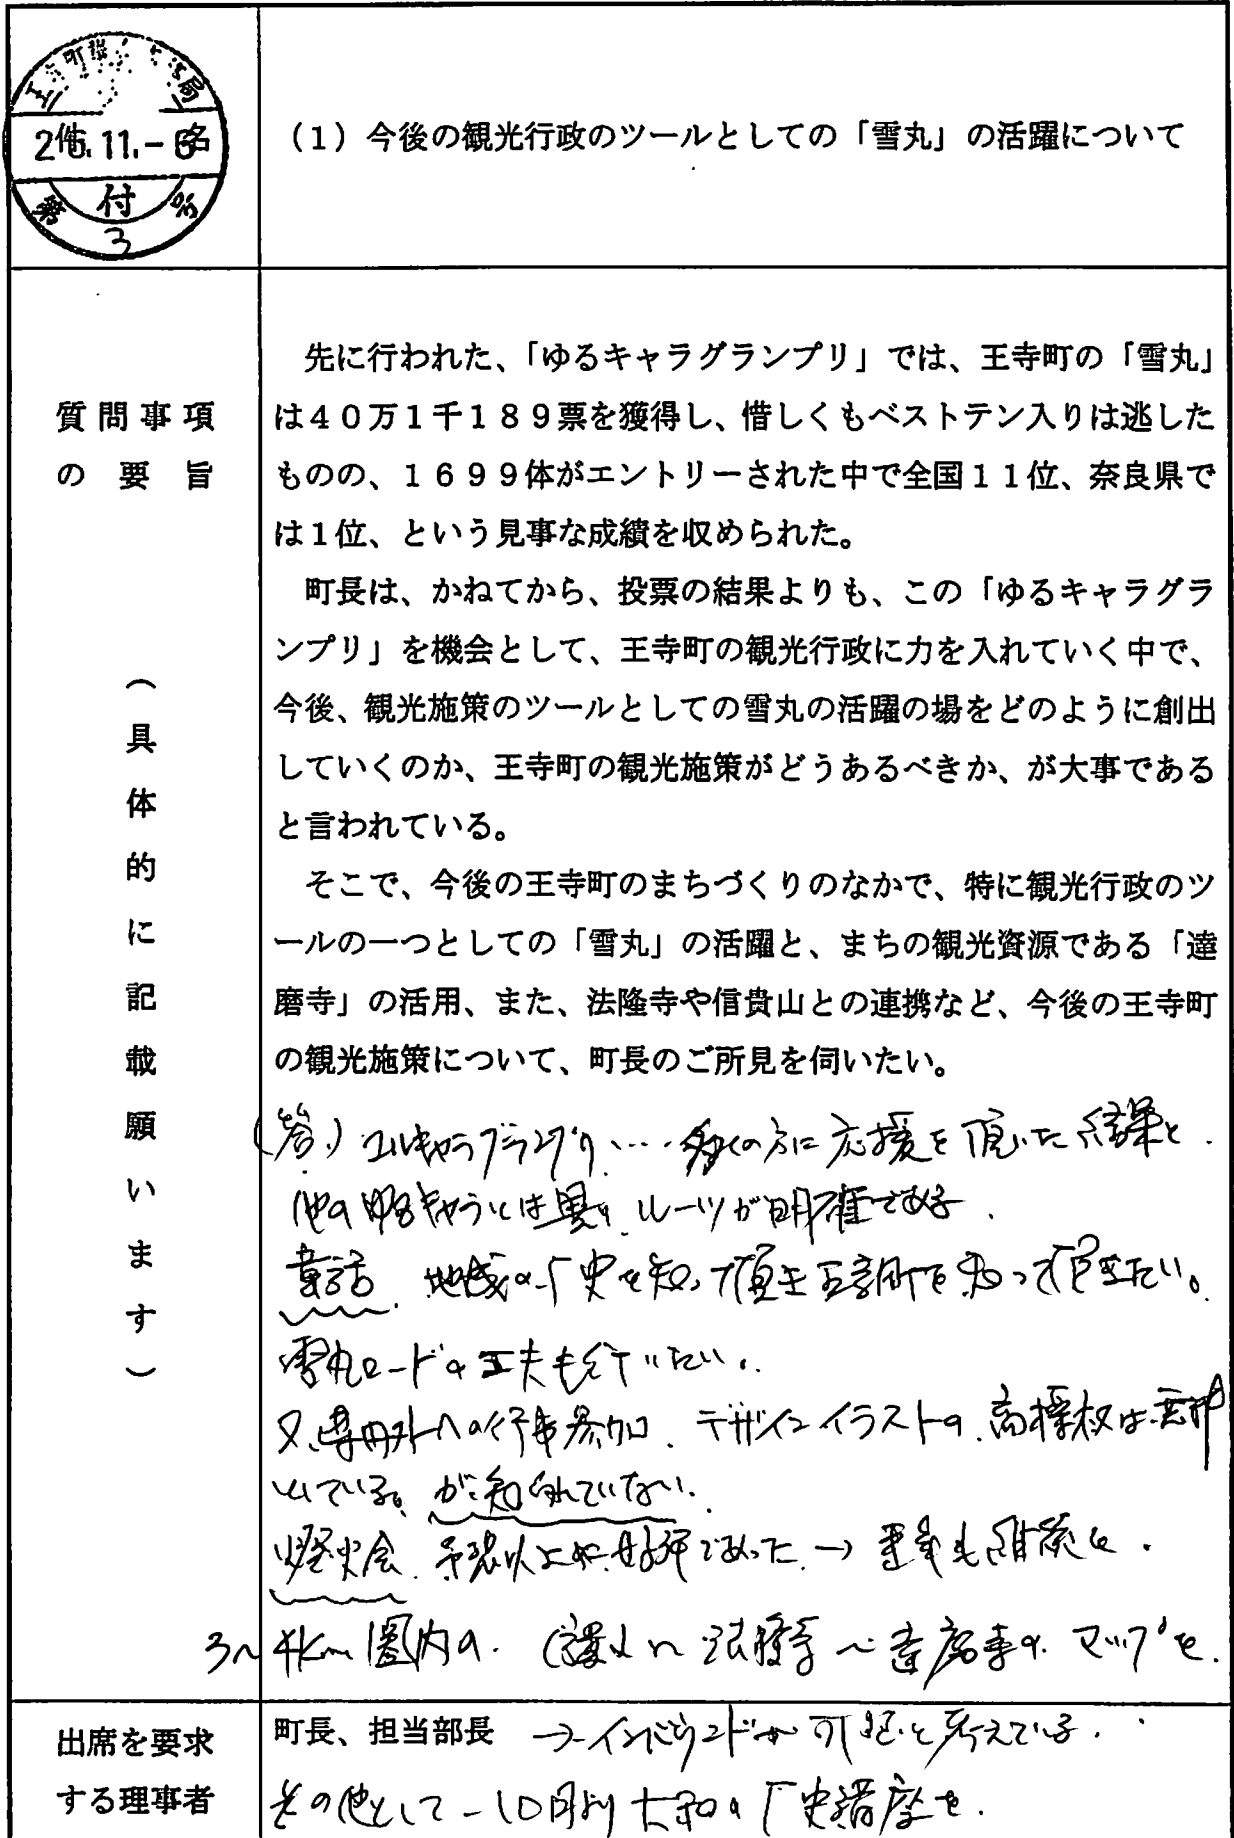 26.11.-6
件名
付
第 3 号
(1)今後の観光行政のツールとしての「雪丸」の活躍について
質問事項
の要旨
(具体的に記載願います)
先に行われた、「ゆるキャラグランプリ」では、王寺町の「雪丸」
は40万1千189票を獲得し、惜しくもベストテン入りは逃した
ものの、1699体がエントリーされた中で全国11位、奈良県で
は1位、という見事な成績を収められた。
町長は、かねてから、投票の結果よりも、この「ゆるキャラグラ
ンプリ」を機会として、王寺町の観光行政に力を入れていく中で、
今後、観光施策のツールとしての雪丸の活躍の場をどのように創出
していくのか、王寺町の観光施策がどうあるべきか、が大事である
と言われている。
そこで、今後の王寺町のまちづくりのなかで、特に観光行政のツ
ールの一つとしての「雪丸」の活躍と、まちの観光資源である「達
磨寺」の活用、また、法隆寺や信貴山との連携など、今後の王寺町
の観光施策について、町長のご所見を伺いたい。
(答) ゆるキャラグランプリ…多くの方に応援を頂いた結果と
他のゆるキャラとは異り ルーツが明確である
童話 地域の 史を知って頂き王寺町を知って頂きたい。
雪丸ロードの工夫も行いたい。
又、専用外への行事参加、デザインイラストの、商標权は
している。が知られていない
燈火会 予想以上の好評であった → 来年も
3～4km圏内の 法隆寺～達磨寺の マップを
出席を要求
する理事者
町長、担当部長 → インバウンドが 可能と考えている。
その他として－10月より大和の 史講座を